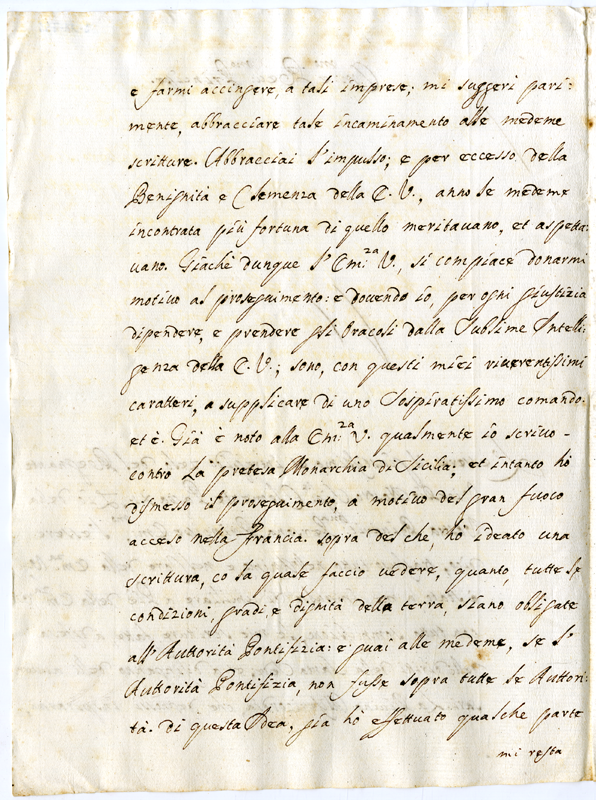 e farmi accingere, a tali imprese; mi suggerì pari:
mente, abbracciare tale incaminamento alle medeme
scritture. Abbracciai l'impulso; e per eccesso della
Benignità e Clemenza della E. V., anno le medeme
incontrata più fortuna di quello meritavano, et aspetta:
vano. Giachè dunque l'Em:ᶻᵃ V., si compiace donarmi
motivo al proseguimento: e dovendo io, per ogni giustizia
dipendere, e prendere gli Oracoli dalla Sublime Intelli:
genza della E. V.; sono, con questi miei riverentissimi
caratteri, a supplicare di uno Sospiratissimo comando:
et è. Già è noto alla Em:ᶻᵃ V. qualmente io scrivo -
contro la pretesa Monarchia di Sicilia; et intanto hò
dismesso il proseguimento, a motivo del gran fuoco
acceso nella Francia. sopra del che, hò ideato una
scrittura, co la quale faccio vedere, quanto, tutte le
condizioni, gradi, e dignità della terra, siano obligate
all'Auttorità Pontifizia: e guai alle medeme, se l'
Auttorità Pontifizia, non fusse sopra tutte le Auttori:
tà. di questa Idea, già hò effettuato qualche parte
mi resta